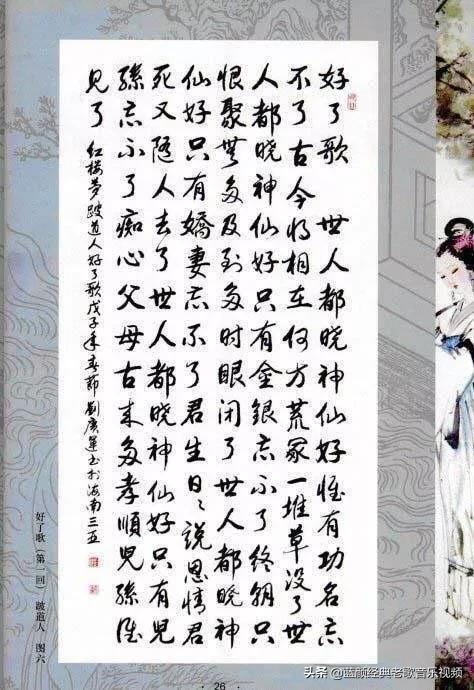 好了歌 世人都晓神仙好惟有功名忘
不了古今将相在何方荒冢一堆草没了世
人都晓神仙好只有金銀忘不了终朝只
恨聚無多及到多时眼闭了世人都晓神
仙好只有嬌妻忘不了君生日日說恩情君
死又随人去了世人都晓神仙好只有児
孫忘不了痴心父母古来多孝順児孫谁
见了 红楼梦跛道人好了歌戊子年春节劉廣運书於海南三亚
好了歌（第一回） 跛道人 图六
· 26 ·
头条 @蓝颜经典老歌音乐视频